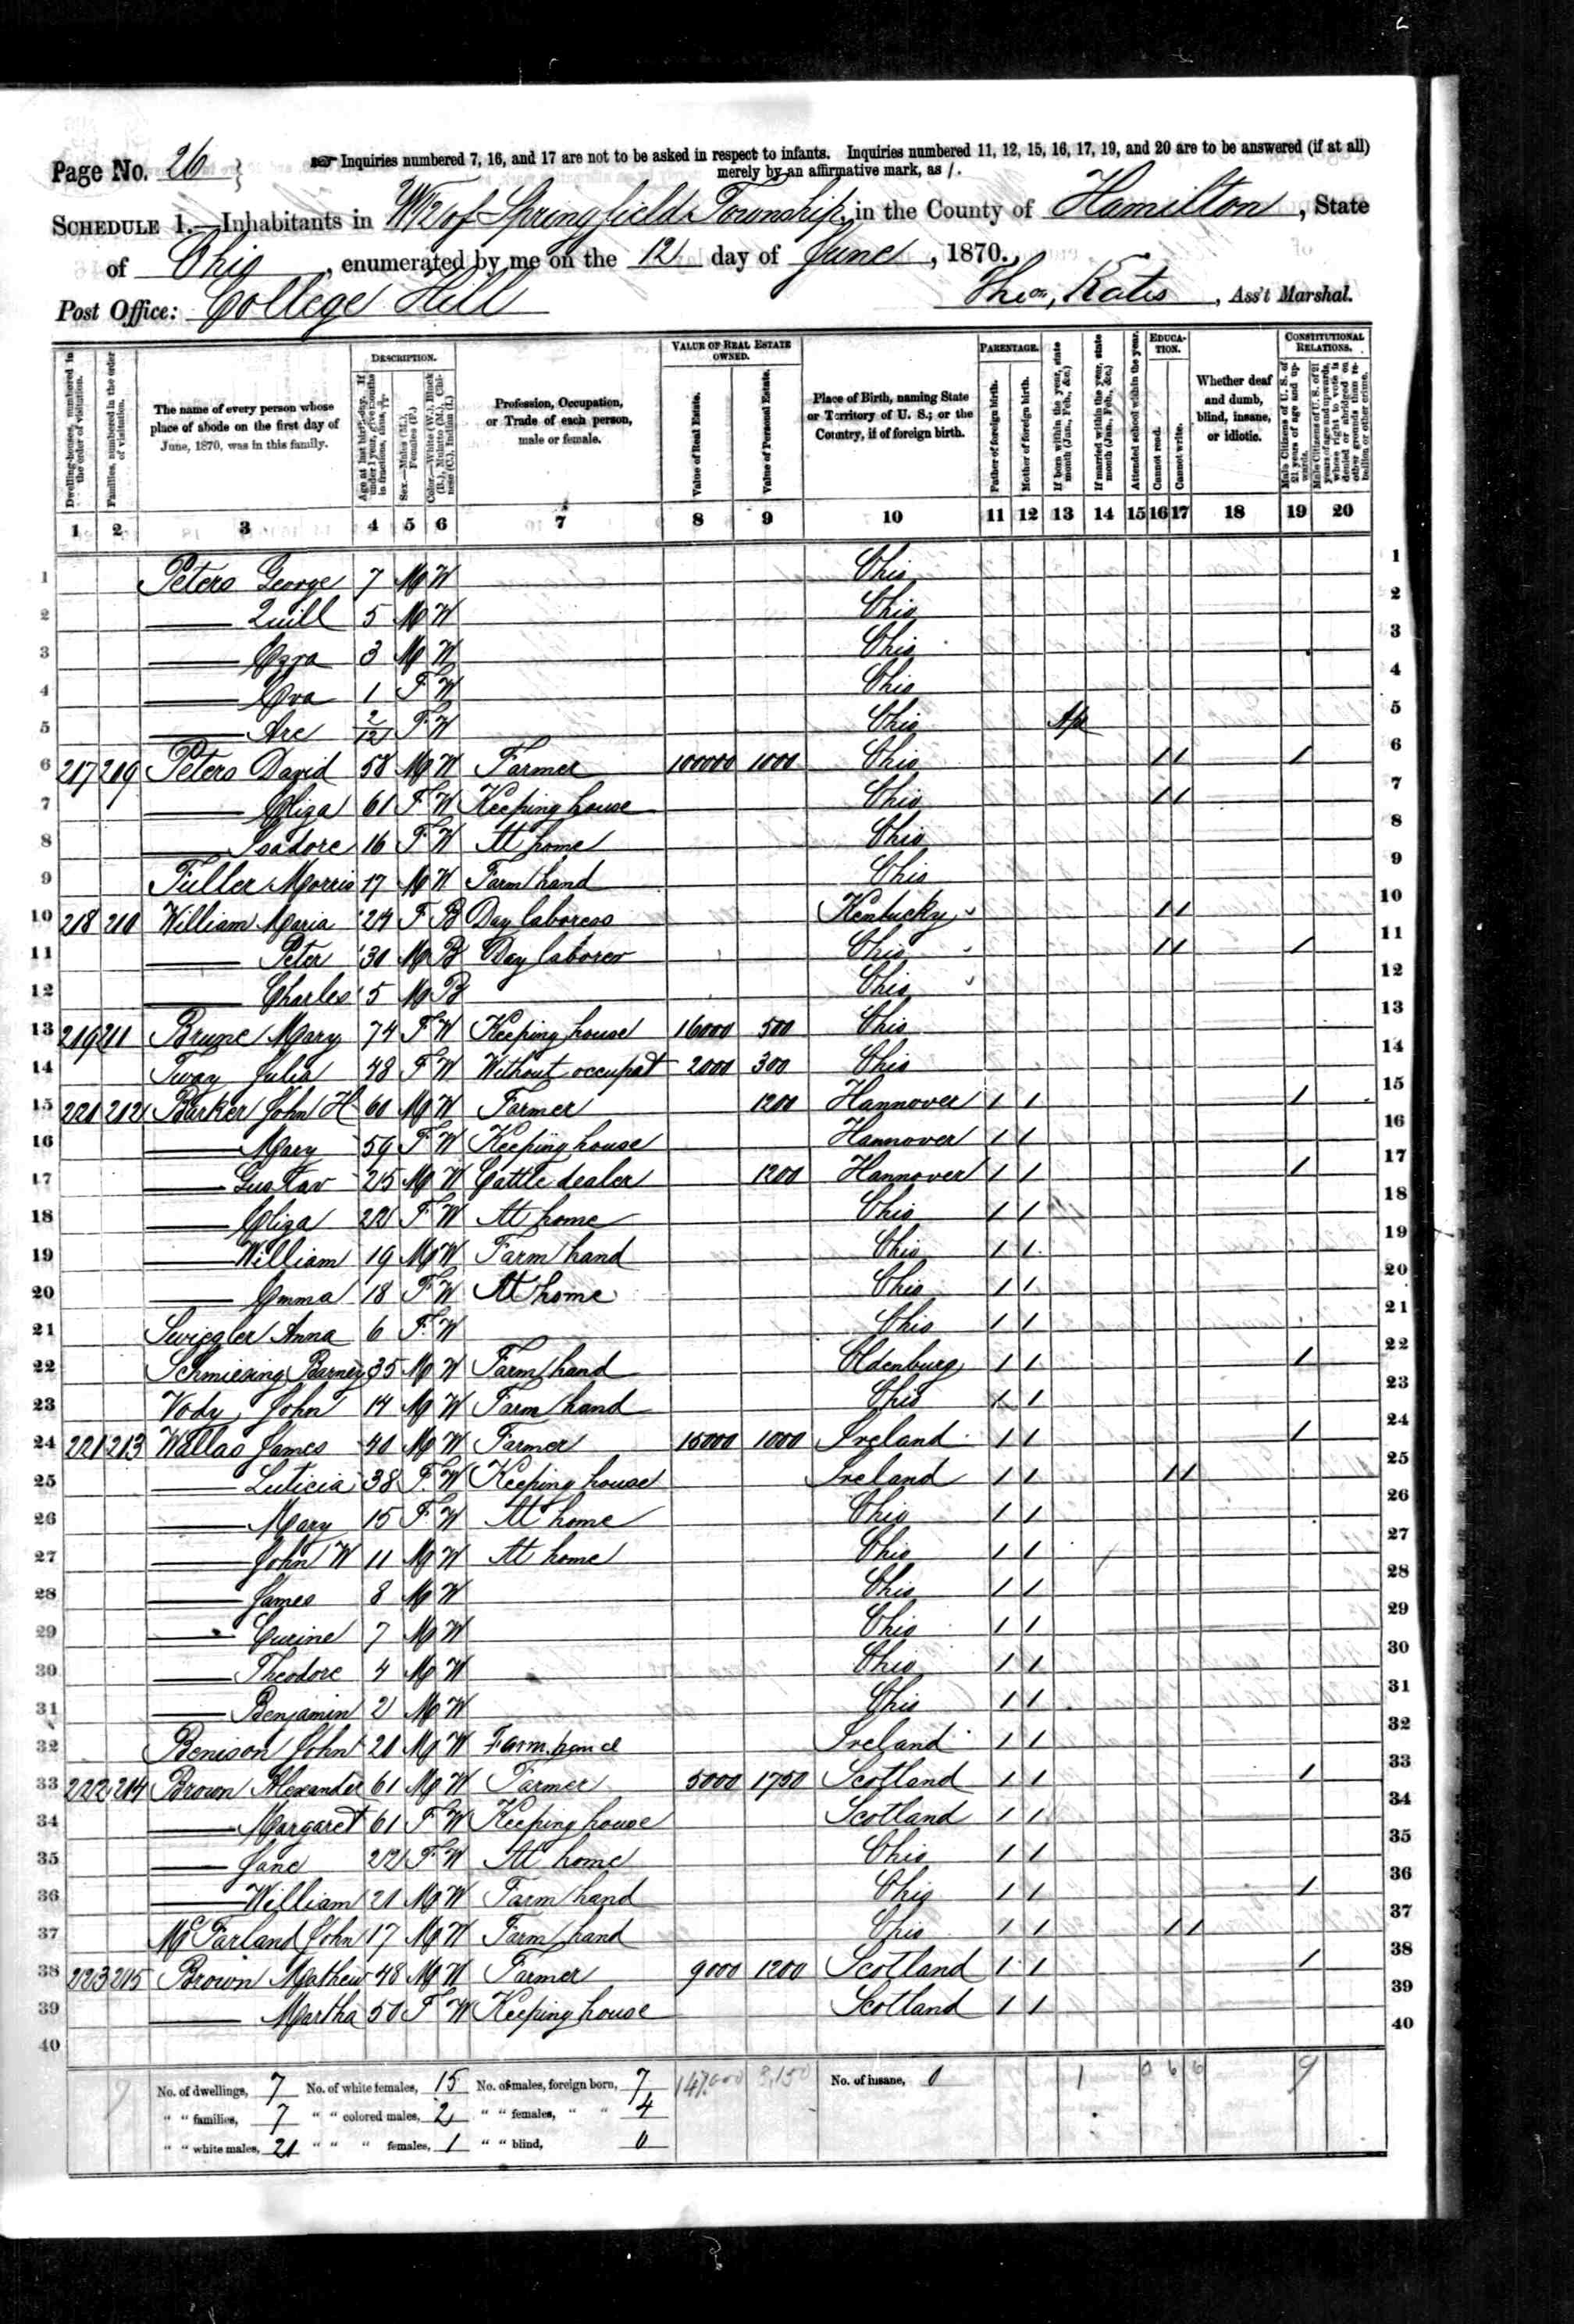 Page No. 26
Inquiries numbered 7, 16, and 17 are not to be asked in respect to infants. Inquiries numbered 11, 12, 15, 16, 17, 19, and 20 are to be answered (if at all)
merely by an affirmative mark, as /.
SCHEDULE 1.—Inhabitants in W 1/2 of Springfield Township, in the County of Hamilton, State
of Ohio, enumerated by me on the 12 day of June, 1870.
Post Office: College Hill
Ass't Marshal.
Dwelling-houses, numbered in the order of visitation.
Families, numbered in the order of visitation.
The name of every person whose place of abode on the first day of June, 1870, was in this family.
DESCRIPTION.
Age at last birth-day. If under 1 year, give months in fractions, thus, 3/12
Sex.—Males (M.), Females (F.)
Color.—White (W.), Black (B.), Mulatto (M.), Chinese (C.), Indian (I.)
Profession, Occupation, or Trade of each person, male or female.
VALUE OF REAL ESTATE OWNED.
Value of Real Estate.
Value of Personal Estate.
Place of Birth, naming State or Territory of U. S.; or the Country, if of foreign birth.
PARENTAGE.
Father of foreign birth.
Mother of foreign birth.
If born within the year, state month (Jan., Feb., &c.)
If married within the year, state month (Jan., Feb., &c.)
Attended school within the year.
EDUCATION.
Cannot read.
Cannot write.
Whether deaf and dumb, blind, insane, or idiotic.
CONSTITUTIONAL RELATIONS.
Male Citizens of U. S. of 21 years of age and upwards.
Male Citizens of U. S. of 21 years of age and upwards, whose right to vote is denied or abridged on other grounds than rebellion or other crime.
1 2 3 4 5 6 7 8 9 10 11 12 13 14 15 16 17 18 19 20
1 Peters George 7 M W Ohio 1
2 —— Quill 5 M W Ohio 2
3 —— Ezra 3 M W Ohio 3
4 —— Ova 1 F W Ohio 4
5 —— Are 2/12 F W Ohio Apr 5
6 217 209 Peters David 58 M W Farmer 100000 1000 Ohio / / / 6
7 —— Eliza 61 F W Keeping house Ohio / / 7
8 —— Isadore 16 F W At home Ohio 8
9 Fuller Morris 17 M W Farm hand Ohio 9
10 218 210 William Maria 24 F B Day laboress Kentucky / / 10
11 —— Peter 30 M B Day laborer Ohio / / / 11
12 —— Charles 5 M B Ohio 12
13 219 211 Brune Mary 74 F W Keeping house 16000 500 Ohio 13
14 Tway Julia 48 F W Without occupat 2000 300 Ohio 14
15 220 212 Barker John H 60 M W Farmer 1200 Hannover / / / 15
16 —— Mary 59 F W Keeping house Hannover / / 16
17 —— Gustav 25 M W Cattle dealer 1200 Hannover / / / 17
18 —— Eliza 22 F W At home Ohio / / 18
19 —— William 19 M W Farm hand Ohio / / 19
20 —— Emma 18 F W At home Ohio / / 20
21 Swiegler Anna 6 F W Ohio / / 21
22 Schmiesing Barney 35 M W Farm hand Oldenburg / / / 22
23 Vody John 14 M W Farm hand Ohio / / 23
24 221 213 Wallas James 40 M W Farmer 15000 1000 Ireland / / / 24
25 —— Luticia 38 F W Keeping house Ireland / / / / 25
26 —— Mary 15 F W At home Ohio / / 26
27 —— John W 11 M W At home Ohio / / 27
28 —— James 8 M W Ohio / / 28
29 —— Curine 7 M W Ohio / / 29
30 —— Theodore 4 M W Ohio / / 30
31 —— Benjamin 2 M W Ohio / / 31
32 Benison John 20 M W Farm hand Ireland / / 32
33 222 214 Brown Alexander 61 M W Farmer 5000 1750 Scotland / / / 33
34 —— Margaret 61 F W Keeping house Scotland / / 34
35 —— Jane 22 F W At home Ohio / / 35
36 —— William 21 M W Farm hand Ohio / / / 36
37 McFarland John 17 M W Farm hand Ohio / / / / 37
38 223 215 Brown Mathew 48 M W Farmer 9000 1200 Scotland / / / 38
39 —— Martha 50 F W Keeping house Scotland / / 39
40 40
No. of dwellings, 7 No. of white females, 15 No. of males, foreign born, 7 147,000 8,150 No. of insane, 0 1 0 6 6 9
" " families, 7 " " colored males, 2 " " females, " " 4
" " white males, 21 " " " females, 1 " " blind, 0